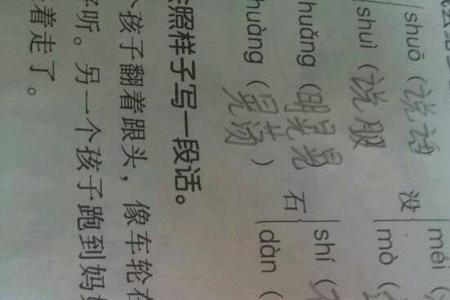 shuō（说话） 没 méi（
shuì（说服） mò（
huǎng（明晃晃） 石 shí（
huàng（晃荡） dàn（
照样子写一段话。
个孩子翻着跟头，像车轮在
好听。另一个孩子跑到妈
着走了。